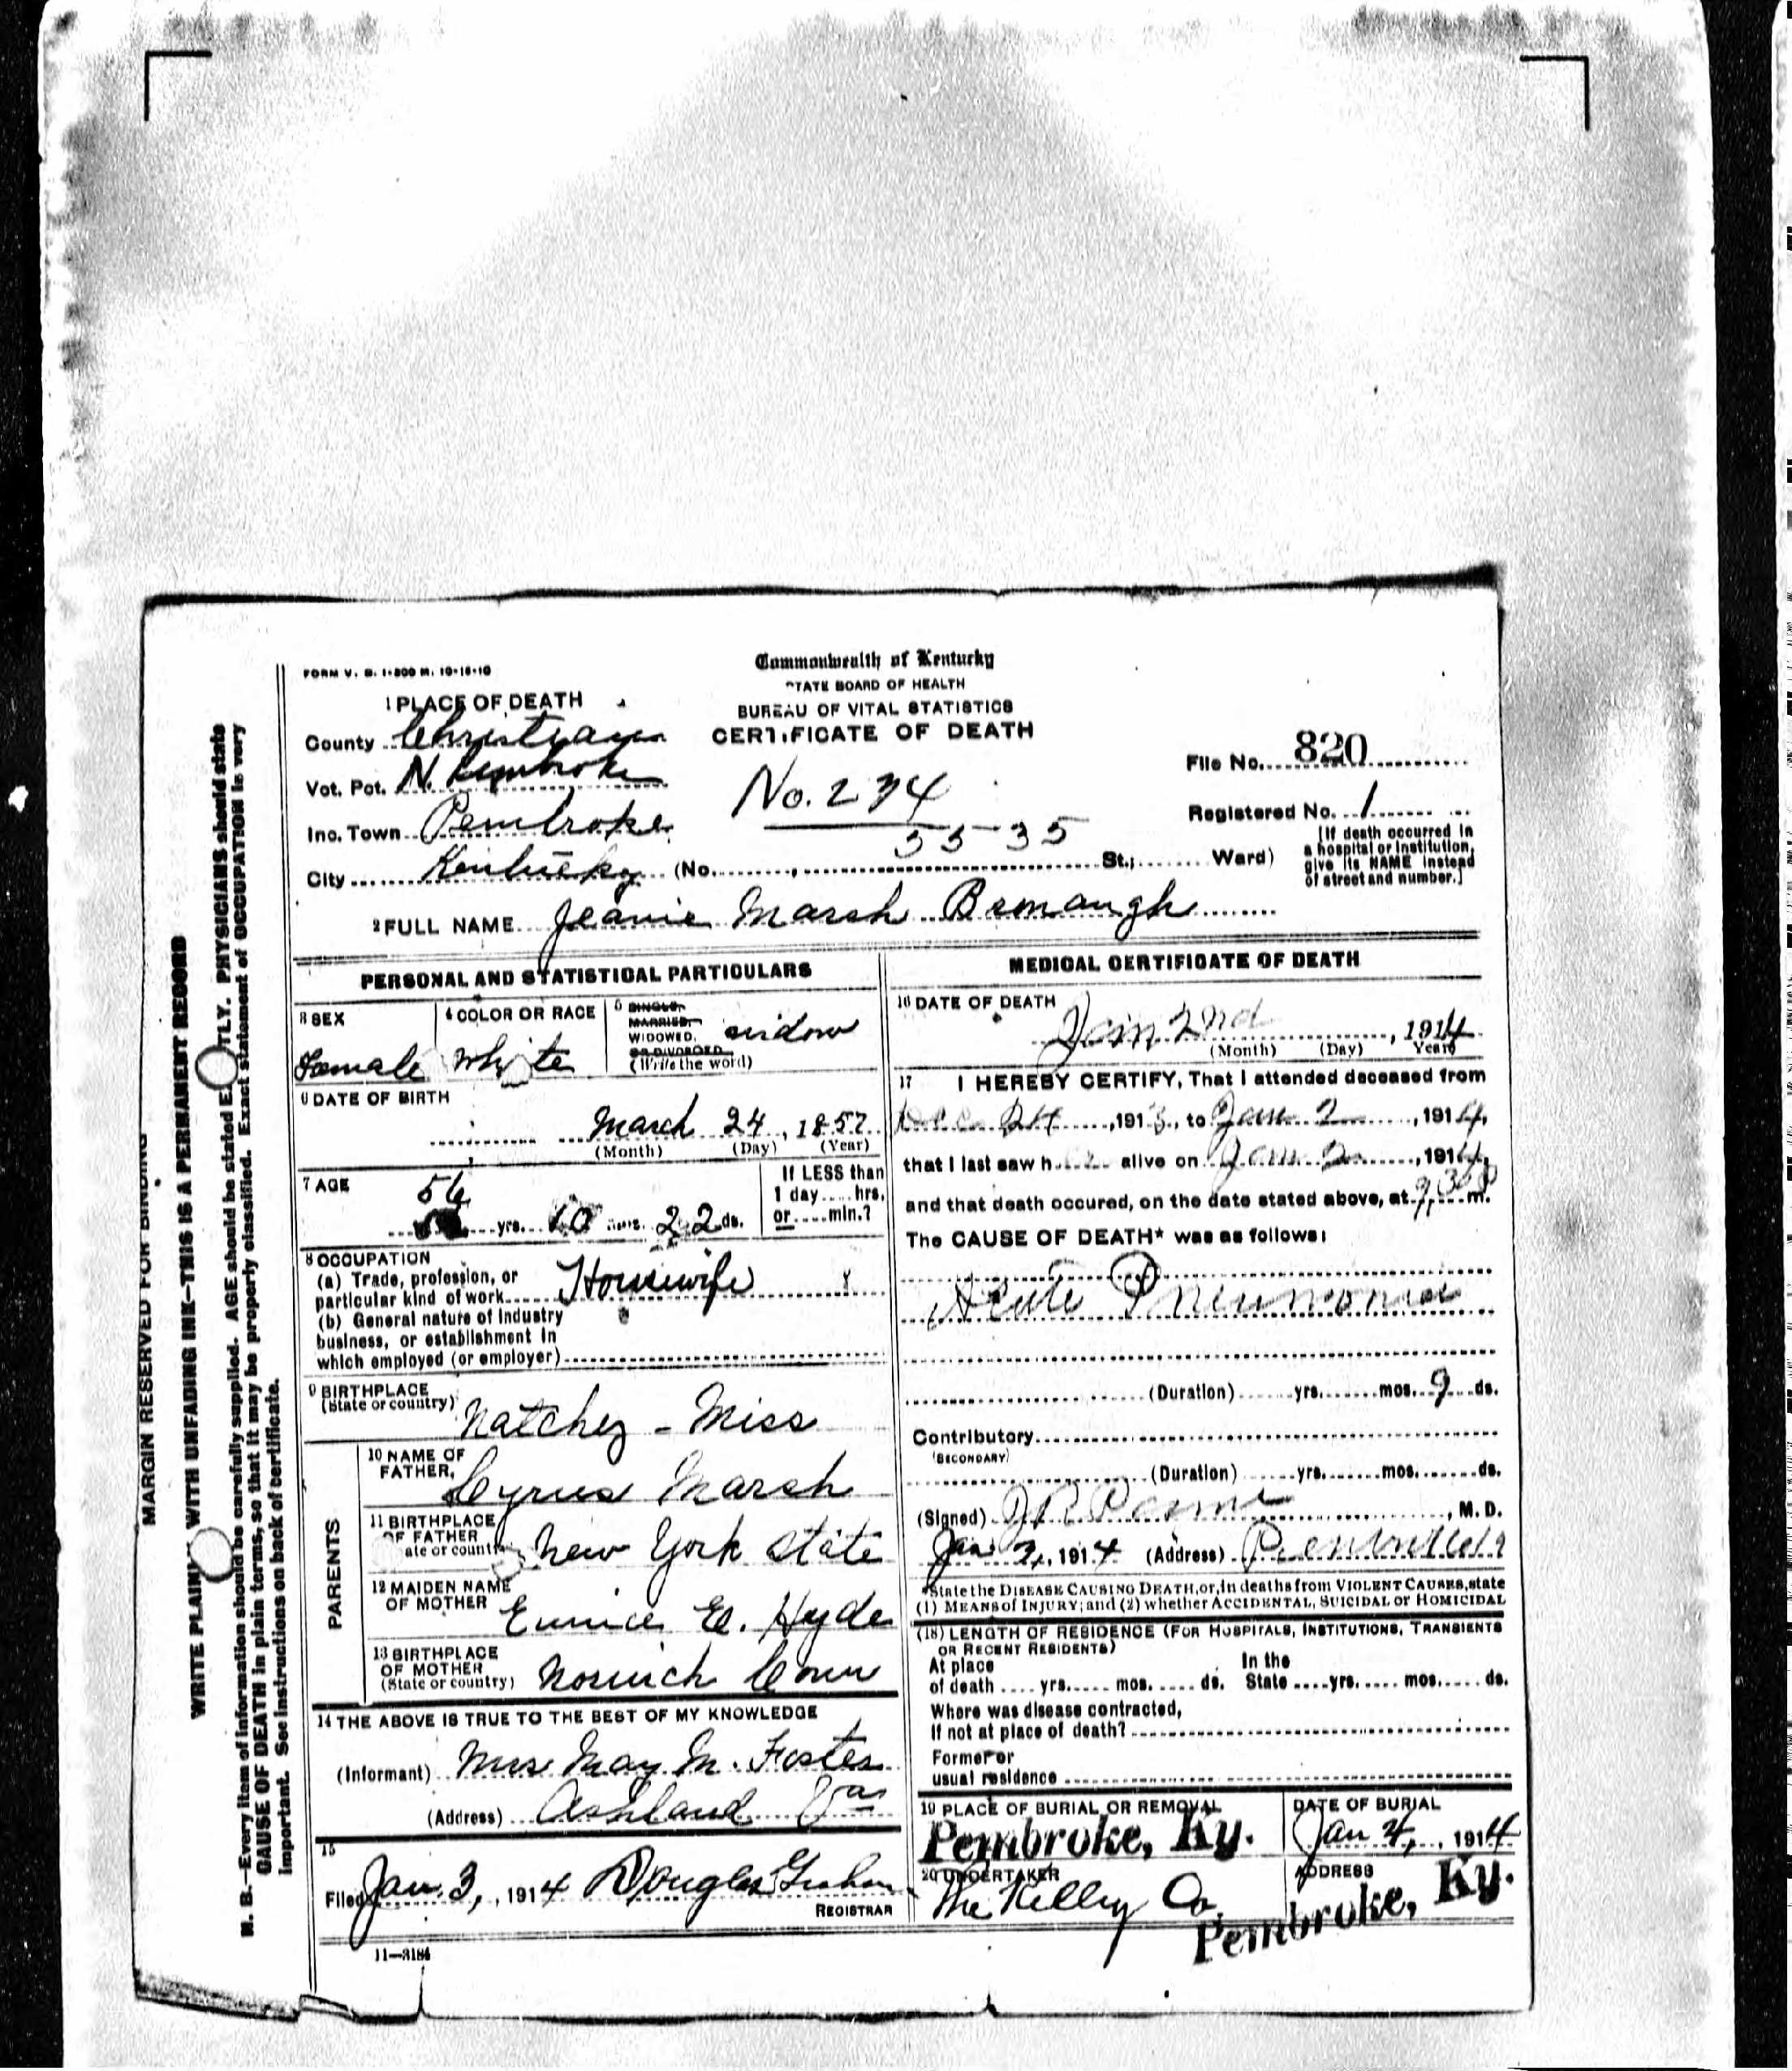 FORM V. S. 1-300 M. 10-18-10
Commonwealth of Kentucky
STATE BOARD OF HEALTH
BUREAU OF VITAL STATISTICS
CERTIFICATE OF DEATH
1 PLACE OF DEATH
County Christian
Vot. Pct. N. Pembroke
Inc. Town Pembroke
City Kentucky (No. St.; Ward)
No. 234
55-35
File No. 820
Registered No. 1
[If death occurred in
a hospital or institution,
give its NAME instead
of street and number.]
2 FULL NAME Jeanie Marsh Bronaugh
PERSONAL AND STATISTICAL PARTICULARS
3 SEX
Female
4 COLOR OR RACE
White
5 SINGLE,
MARRIED,
WIDOWED,
OR DIVORCED
(Write the word)
widow
6 DATE OF BIRTH
March 24, 1857
(Month) (Day) (Year)
7 AGE
56
yrs. 10 mos. 22 ds.
If LESS than
1 day .... hrs.
or .... min.?
8 OCCUPATION
(a) Trade, profession, or
particular kind of work Housewife
(b) General nature of industry
business, or establishment in
which employed (or employer)
9 BIRTHPLACE
(State or country) Natchez - Miss
PARENTS
10 NAME OF
FATHER, Cyrus Marsh
11 BIRTHPLACE
OF FATHER
ate or country New York State
12 MAIDEN NAME
OF MOTHER Eunice E. Hyde
13 BIRTHPLACE
OF MOTHER
(State or country) Norwich Conn
14 THE ABOVE IS TRUE TO THE BEST OF MY KNOWLEDGE
(Informant) Mrs May M. Foster
(Address) Ashland
15
Filed Jan. 3, 1914 Douglas Graham
REGISTRAR
11-3184
MEDICAL CERTIFICATE OF DEATH
16 DATE OF DEATH
Jan 2nd, 1914
(Month) (Day) Year
17 I HEREBY CERTIFY, That I attended deceased from
Dec 24, 1913, to Jan 2, 1914,
that I last saw h alive on Jan 2, 1914,
and that death occured, on the date stated above, at 9,30 m.
The CAUSE OF DEATH* was as follows:
Acute Pneumonia
(Duration) yrs. mos. 9 ds.
Contributory
(SECONDARY)
(Duration) yrs. mos. ds.
(Signed) , M. D.
Jan 3, 1914 (Address) Pembroke
*State the DISEASE CAUSING DEATH, or, in deaths from VIOLENT CAUSES, state
(1) MEANS of INJURY; and (2) whether ACCIDENTAL, SUICIDAL or HOMICIDAL
(18) LENGTH OF RESIDENCE (FOR HOSPITALS, INSTITUTIONS, TRANSIENTS
OR RECENT RESIDENTS)
At place In the
of death .... yrs. .... mos. .... ds. State .... yrs. .... mos. .... ds.
Where was disease contracted,
If not at place of death?
Former or
usual residence
19 PLACE OF BURIAL OR REMOVAL
Pembroke, Ky.
DATE OF BURIAL
Jan 4, 1914
20 UNDERTAKER
The Kelley Co.
ADDRESS
Pembroke, Ky.
MARGIN RESERVED FOR BINDING
WRITE PLAINLY WITH UNFADING INK—THIS IS A PERMANENT RECORD
N. B.—Every item of information should be carefully supplied. AGE should be stated EXACTLY. PHYSICIANS should state
CAUSE OF DEATH in plain terms, so that it may be properly classified. Exact statement of OCCUPATION is very
important. See instructions on back of certificate.